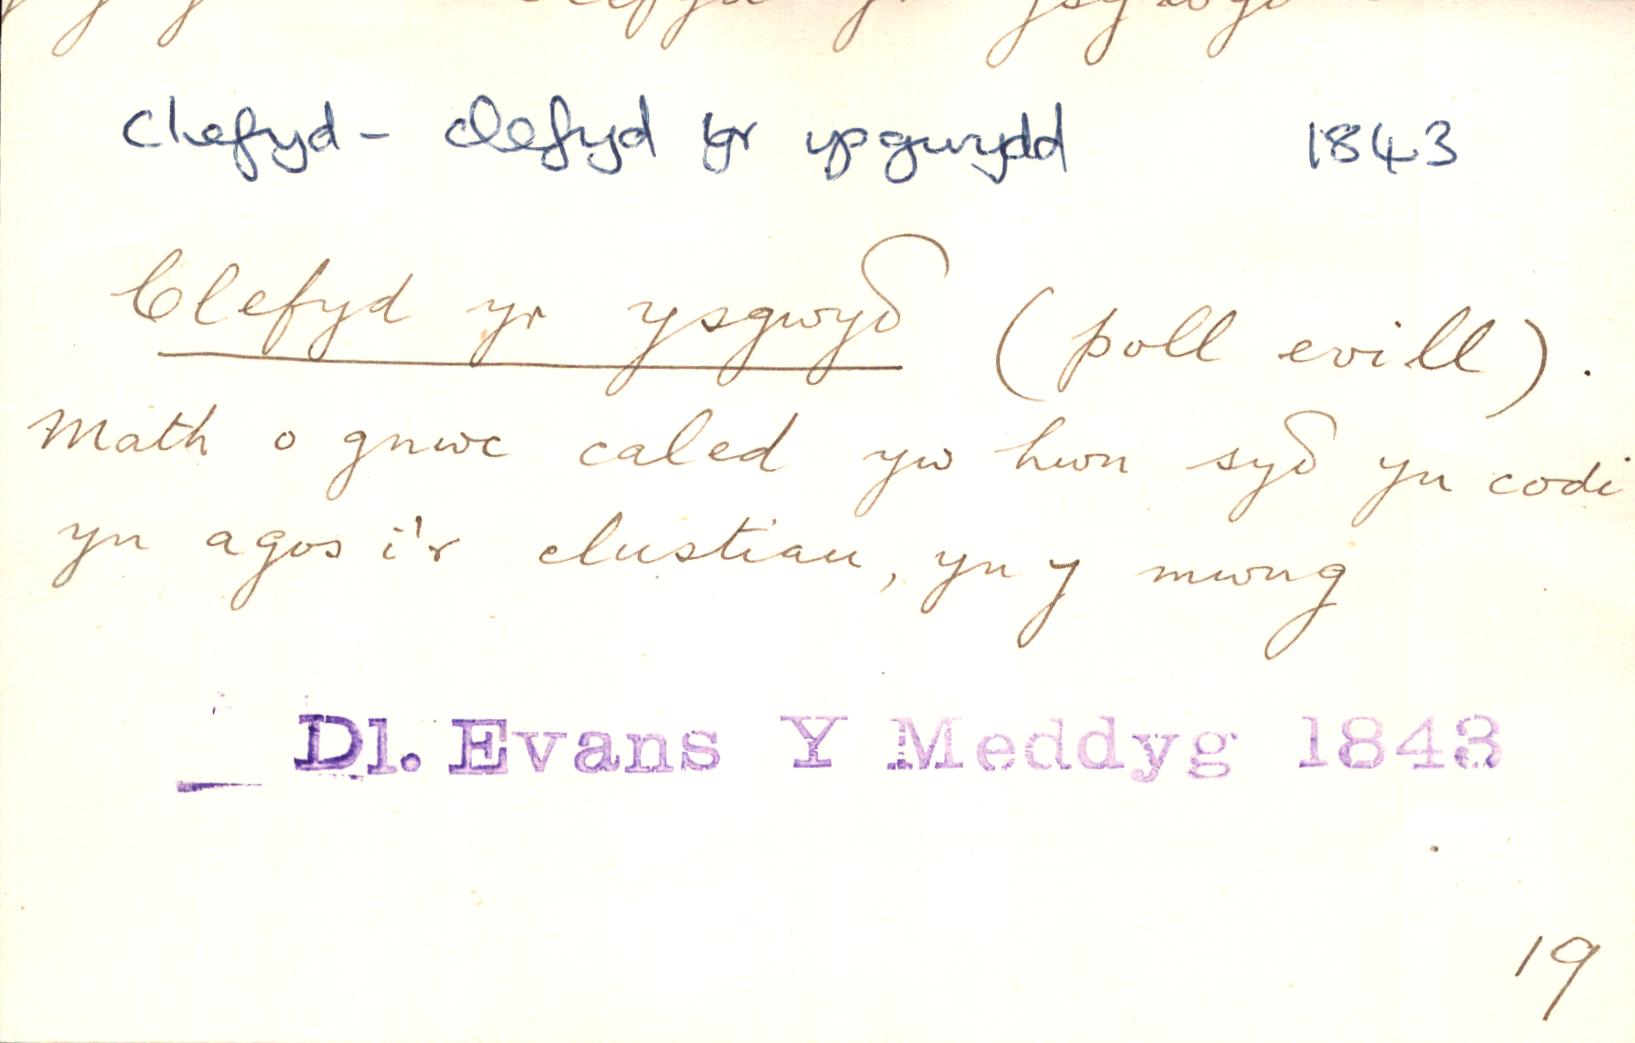 Clefyd - clefyd yr ysgwydd 1843
Clefyd yr ysgwyδ (poll evill).
Math o gnwc caled yw hwn syδ yn codi
yn agos i'r clustiau, yn y mwng
Dl. Evans Y Meddyg 1843
19